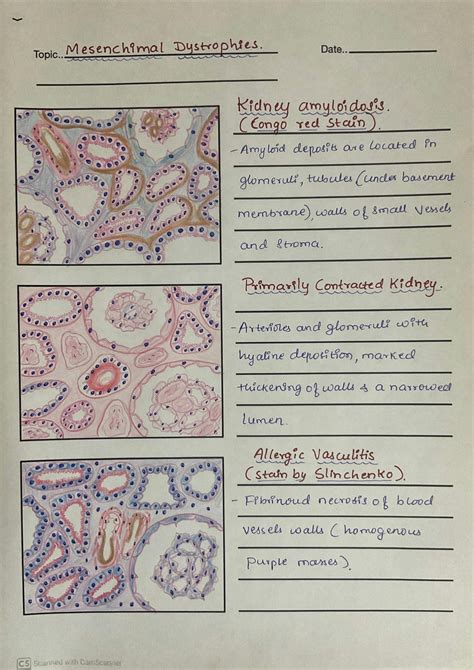 Topic.. Mesenchimal Dystrophies.
Date..
Kidney amyloidosis.
(Congo red stain).
- Amyloid deposits are located in
glomeruli, tubules (under basement
membrane), walls of small vessels
and stroma.
Primarily Contracted Kidney.
- Arterioles and glomeruli with
hyaline deposition, marked
thickening of walls & a narrowed
lumen.
Allergic Vasculitis
(stain by Slinchenko).
- Fibrinoud necrosis of blood
vessels walls (homogenous
Purple masses).
CS Scanned with CamScanner